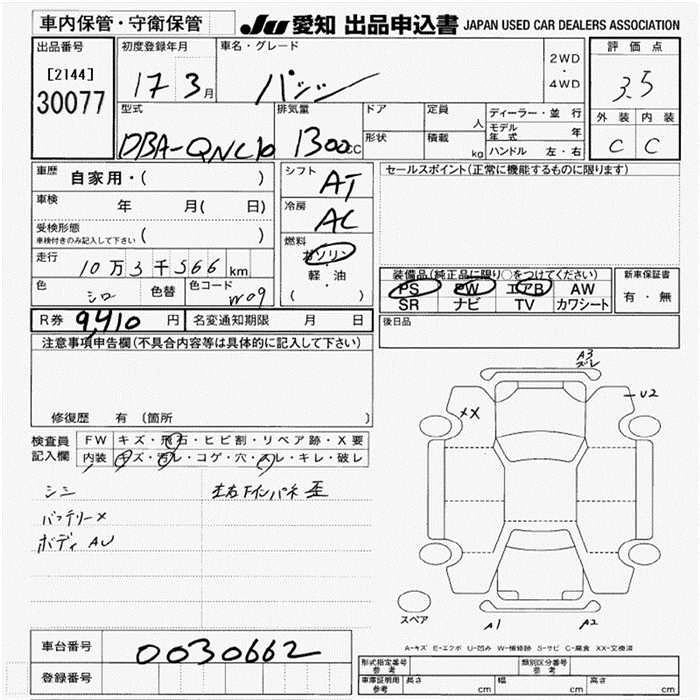 車内保管・守衛保管
JU 愛知 出品申込書 JAPAN USED CAR DEALERS ASSOCIATION
出品番号
[2144]
30077
初度登録年月
17 3月
車名・グレード
2WD
・
4WD
評価点
3.5
外装 内装
C C
型式
DBA-QNC10
排気量
1300cc
ドア
形状
定員
人
積載
kg
ディーラー・並行
モデル年式 年
ハンドル 左・右
車歴 自家用・( )
車検 年 月( 日)
受検形態
車検付きのみ記入して下さい ( )
走行 10万3千566km
色 シロ 色替 色コード W09
シフト
AT
冷房
AC
燃料
ガソリン
・
軽油
( )
セールスポイント(正常に機能するものに限ります)
装備品(純正品に限り○をつけてください)
PS PW エアB AW
SR ナビ TV カワシート
新車保証書
有・無
後日品
R券 9,410 円 名変通知期限 月 日
注意事項申告欄(不具合内容等は具体的に記入して下さい)
修復歴 有 (箇所 )
検査員記入欄
FW キズ・飛石・ヒビ割・リペア跡・X要
内装 キズ・汚レ・コゲ・穴・スレ・キレ・破レ
シミ
バッテリーX
ボディ AU
左右下インパネ 歪
A3
ズレ
U2
XX
スペア
A1
A2
A-キズ E-エクボ U-凹み W-補修跡 S-サビ C-腐食 XX-交換済
車台番号 0030662
登録番号
型式指定番号 参考
類別区分番号 参考
車庫証明用 参考 長さ cm 幅 cm 高さ cm